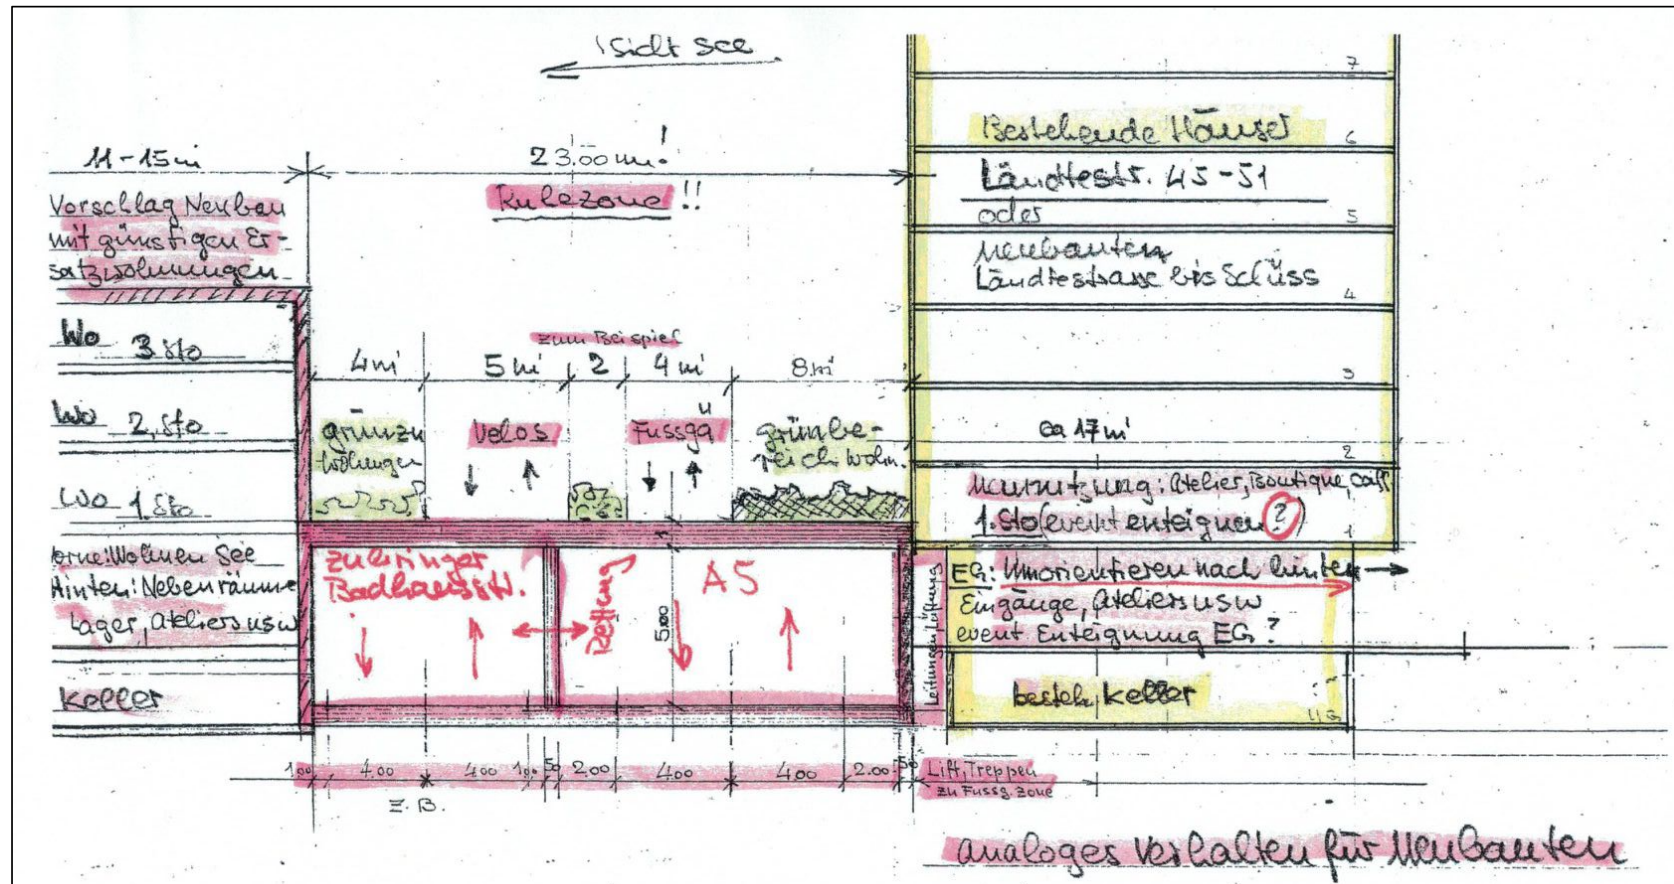 Sicht See
11-15m
23.00m!
Ruhezone!!
Vorschlag Neubau
mit günstigen Er-
satzwohnungen
Wo 3.Sto
Wo 2.Sto
Wo 1.Sto
vorne:Wohnen See
Hinten:Nebenräume
Lager, Ateliers usw
Keller
zum Beispiel
4m 5m 2 4m 8m
grünzu
wohnungen
Velos
Fussgä
grünbe-
reich Wohn.
Zubringer
Badhausstr.
Rettung
A5
5.00
Leitungen Lüftung
1.00 4.00 4.00 1.00 50 2.00 4.00 4.00 2.00 50
z.B.
Lift, Treppen
zu Fussg. zone
7
Bestehende Häuser
6
Ländtestr. 45-51
oder
5
Neubauten
Ländtestrasse bis Schüss
4
3
ca 17m
2
Neunutzung: Atelier, Boutique, Café
1.Sto(event enteignen?)
1
EG: Umorientieren nach hinten
Eingänge, Ateliers usw
event Enteignung EG?
besteh. Keller
UG
analoges Verhalten für Neubauten